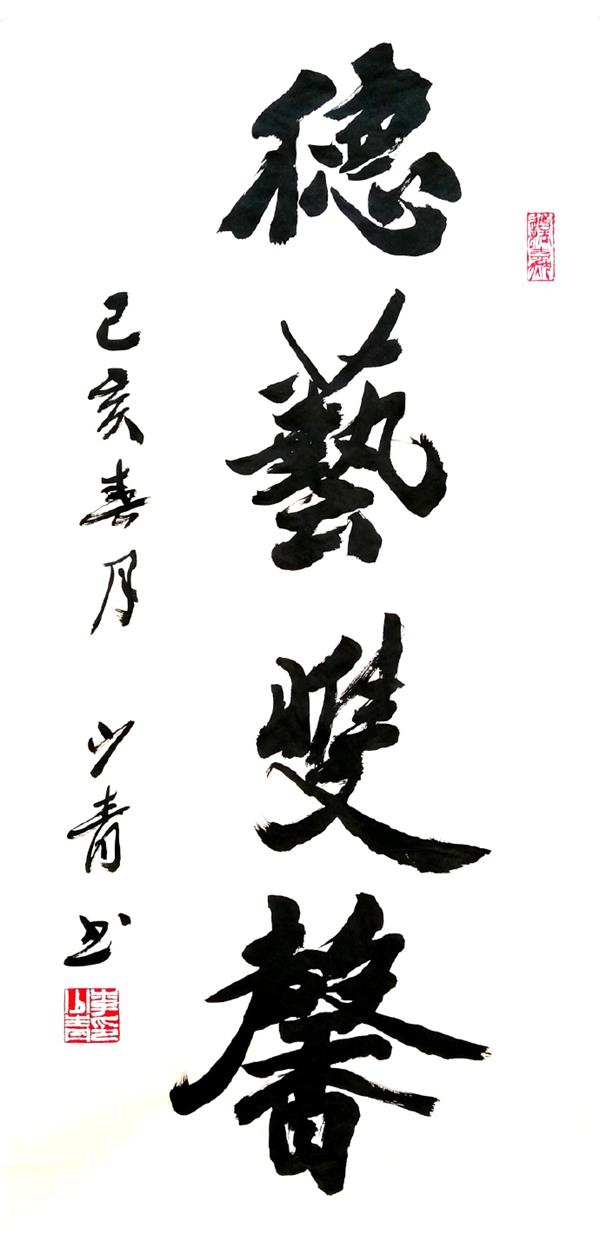 德藝雙馨
己亥春月 少青书